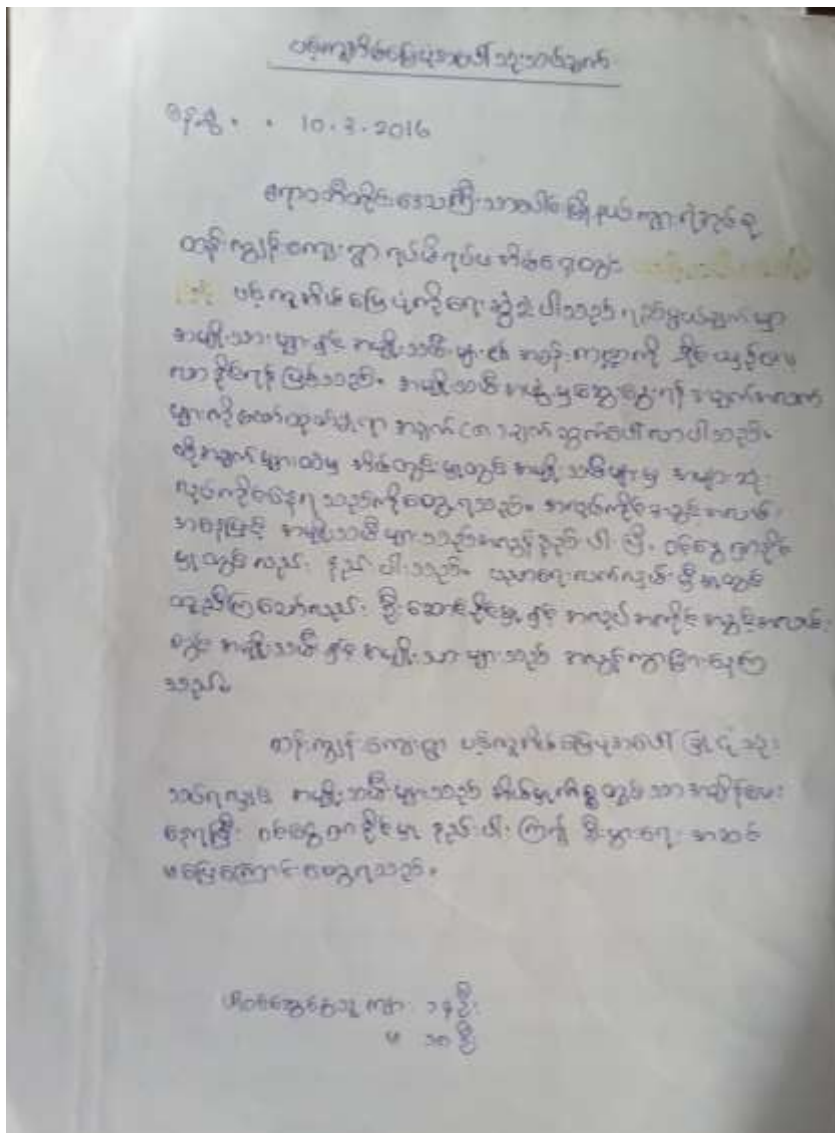 ပင့်ကူအိမ်မြေပုံအပေါ်သုံးသပ်ချက်
နေ့စွဲ . . 10.3.2016
ဧရာဝတီတိုင်းဒေသကြီးသာပေါင်းမြို့နယ်ကွင်း
တန်းကျွန်းကျေးရွာ ရပ်မိရပ်ဖ အိမ်ရှေ့တွင်
ပင့်ကူအိမ်မြေပုံကိုရေးဆွဲခဲ့ပါသည်။ ရည်ရွယ်ချက်မှာ
အမျိုးသားများနှင့် အမျိုးသမီးများ၏ အခန်းကဏ္ဍကို
လာနိုင်ရန်ဖြစ်သည်။ အမျိုးသမီးအဖွဲ့မှဆွေးနွေးရန် အချက်အလက်
များကိုဖော်ထုတ်ရာ အချက် ချက်ထွက်ပေါ်လာပါသည်။
ထိုအချက်များထဲမှ အိမ်တွင်းမှုတွင် အမျိုးသမီးများမှ အများဆုံး
လုပ်ကိုင်နေရသည်ကိုတွေ့ရသည်။ အလုပ်ကိုင်အခွင့်အလမ်း
အနေဖြင့် အမျိုးသမီးများသည်အလွန်နည်းပါးပြီး ဝင်ငွေရှာနိုင်
မှုတွင်လည်း နည်းပါးသည်။ ပညာရေးလက်လှမ်းမှီမှုတွင်
တူညီကြသော်လည်း ဦးဆောင်နိုင်မှုနှင့် အလုပ်အကိုင်အခွင့်အလမ်း
တွင် အမျိုးသမီးနှင့် အမျိုးသားများသည် အလွန်ကွာခြားနေကြ
သည်။
တန်းကျွန်းကျေးရွာ ပင့်ကူအိမ်မြေပုံအပေါ် ခြုံငုံသုံး
သပ်ရလျှင် အမျိုးသမီးများသည် အိမ်မှုကိစ္စတွင်သာအချိန်ပေး
နေရပြီး ဝင်ငွေရှာနိုင်မှု နည်းပါးကြ၍ စီးပွားရေး အဆင်
မပြေကြောင်းတွေ့ရသည်။
ပါဝင်ဆွေးနွေးသူ